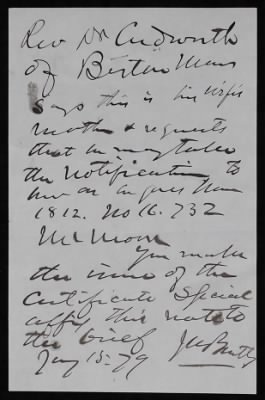 Rev Dr Cudworth
of Boston Mass
Says this is his wifes
mother & requests
that we may take
the Notification to
her
1812. No 16.732
Mr Moore
You make
the issue of the
Certificate Special
affix this note to
the brief
Jany 15-79